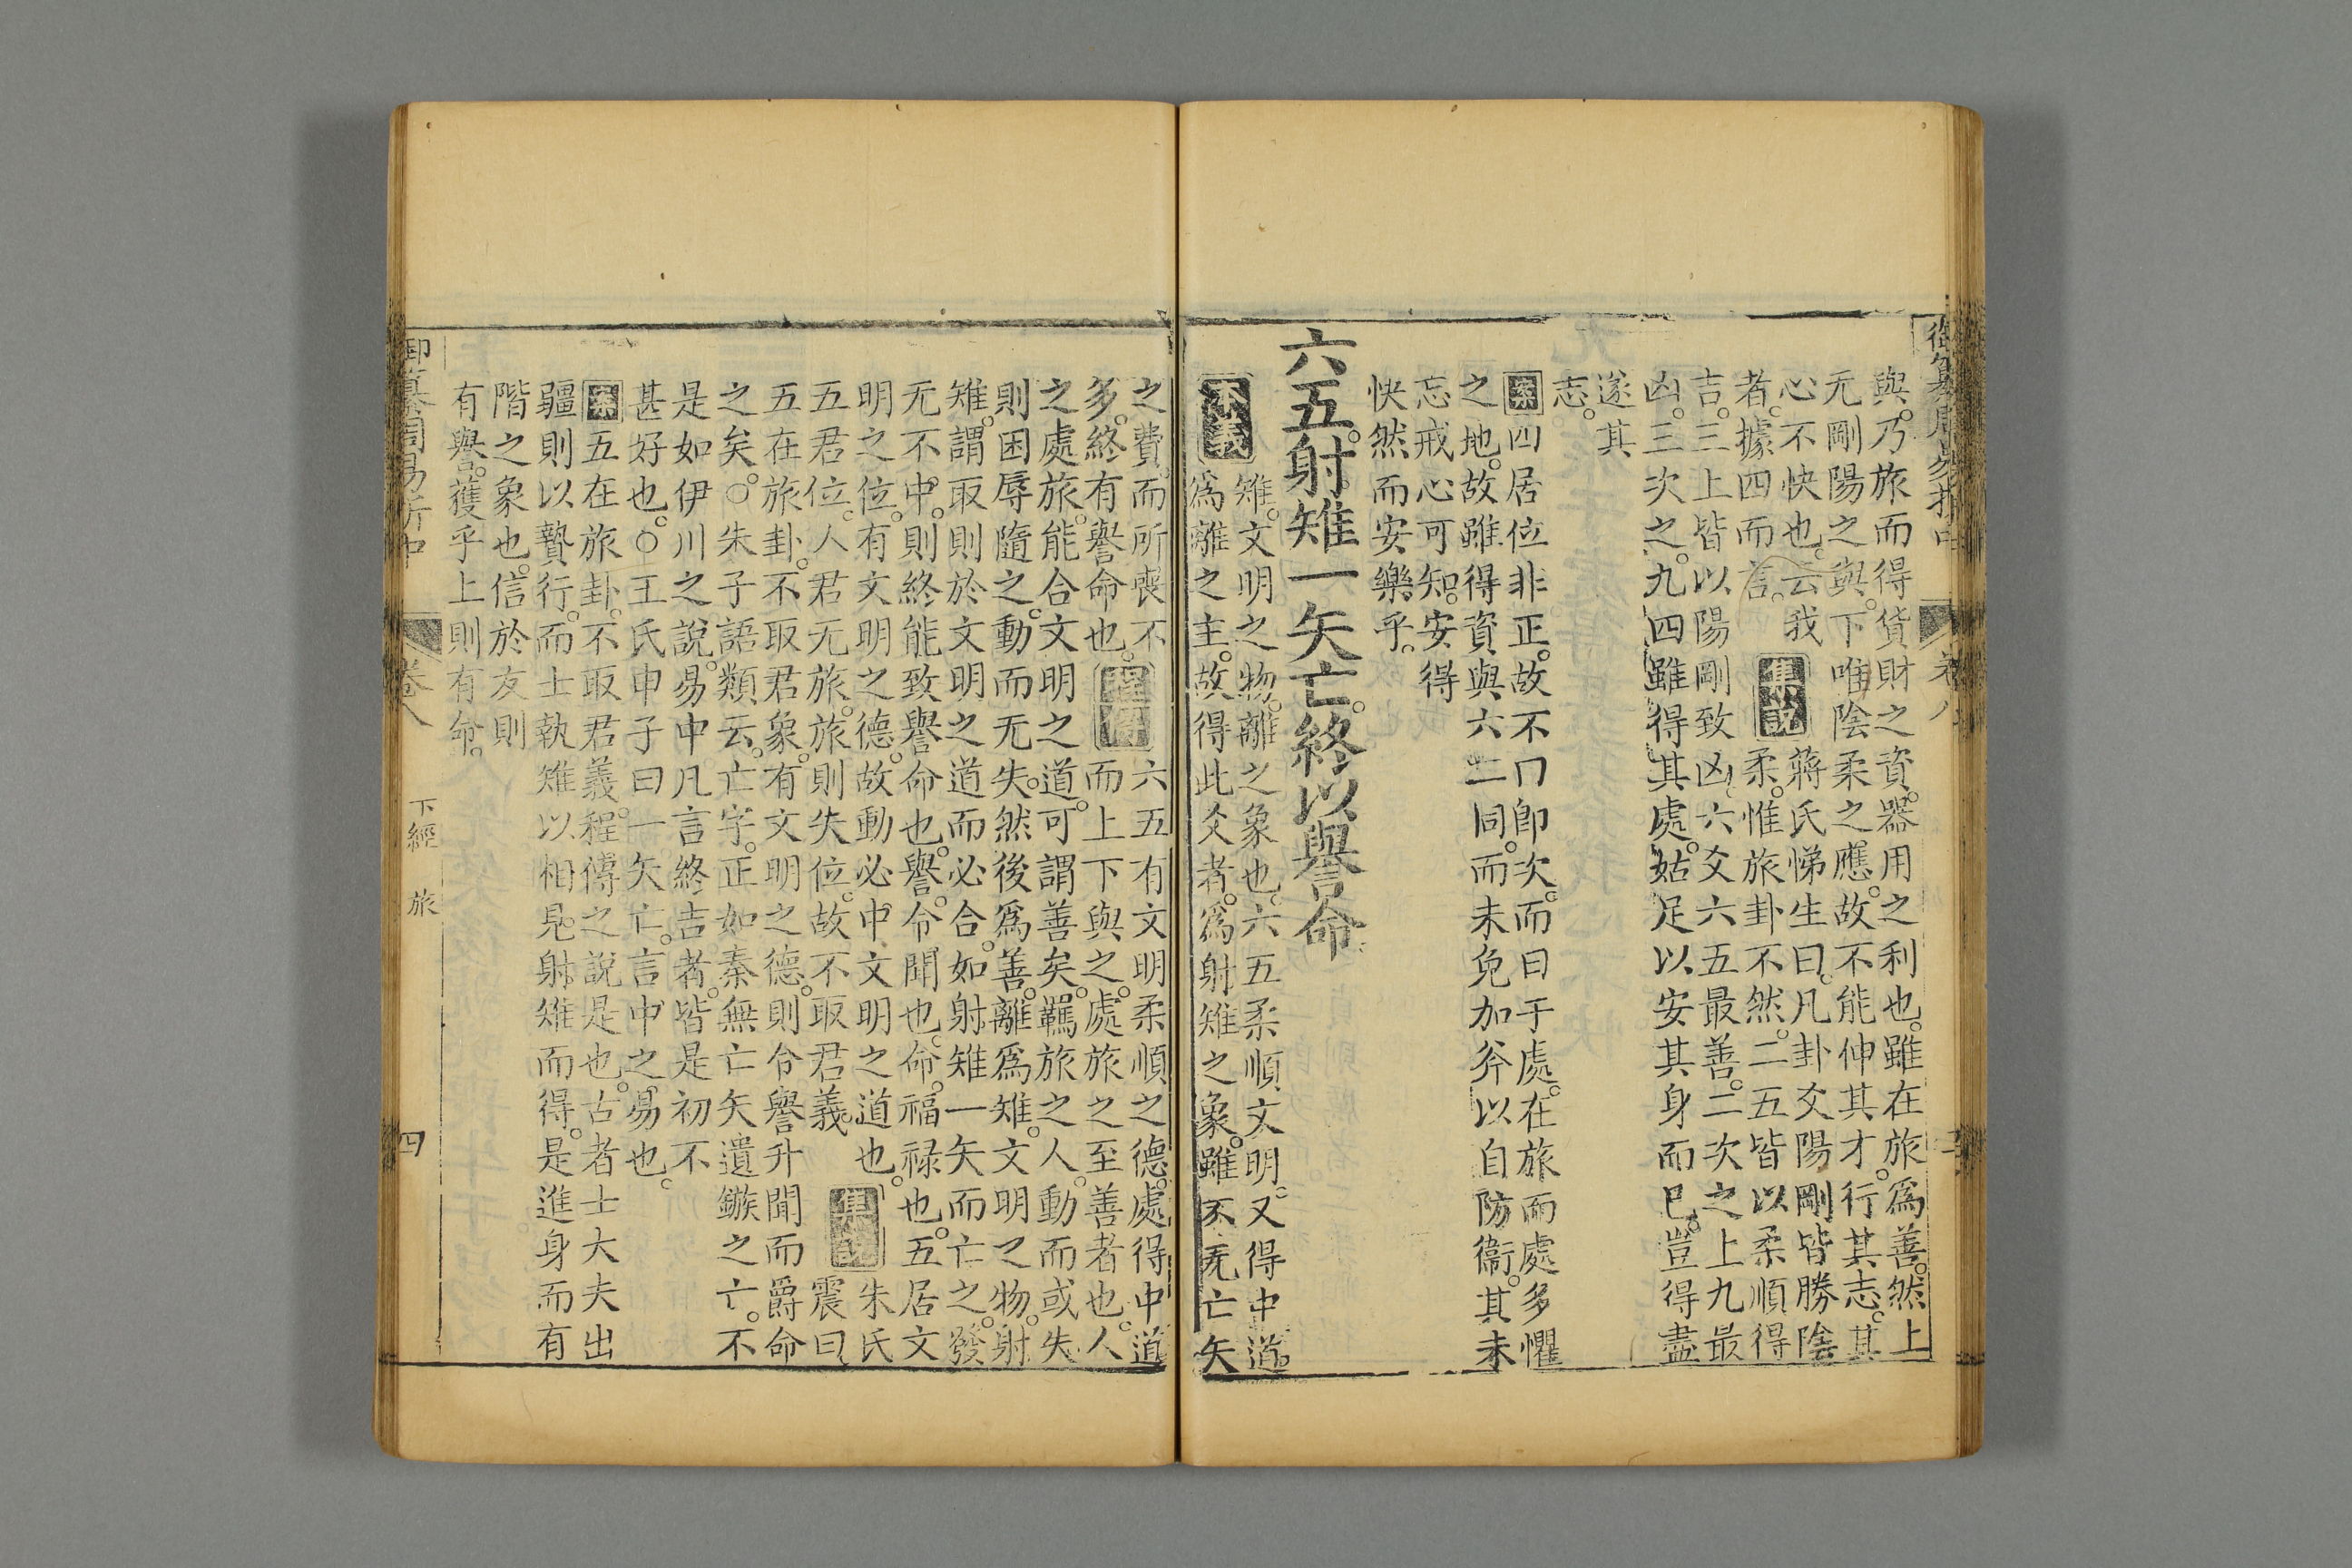 御纂周易折中 卷八
與。乃旅而得貨財之資。器用之利也。雖在旅。爲善。然上
无剛陽之與。下唯陰柔之應。故不能伸其才。行其志。其
心不快也。云我 集說 蔣氏悌生曰。凡卦爻陽剛皆勝陰
者。據四而言。 柔。惟旅卦不然。二五皆以柔順得
吉。三上皆以陽剛致凶。六爻六五最善。二次之。上九最
凶。三次之。九四雖得其處。姑足以安其身而已。豈得盡
遂其
志。
案四居位非正。故不曰卽次。而曰于處。在旅而處多懼
之地。故雖得資與六二同。而未免加斧以自防衞。其未
忘戒心可知。安得
快然而安樂乎。
六五。射雉一矢亡。終以譽命。
本義 雉。文明之物。離之象也。六五柔順文明。又得中道。
爲離之主。故得此爻者。爲射雉之象。雖不无亡矢
之費。而所喪不 程傳 六五有文明柔順之德。處得中道
多。終有譽命也。 而上下與之。處旅之至善者也。人
之處旅。能合文明之道。可謂善矣。羈旅之人。動而或失
則困辱隨之。動而无失。然後爲善。離爲雉。文明之物。射
雉。謂取則於文明之道而必合。如射雉一矢而亡之。發
无不中。則終能致譽命也。譽。令聞也。命。福祿也。五居文
明之位。有文明之德。故動必中文明之道也。 集說 朱氏
五君位。人君无旅。旅則失位。故不取君義。 震曰
五在旅卦。不取君象。有文明之德。則令譽升聞而爵命
之矣。○朱子語類云。亡字。正如秦無亡矢遺鏃之亡。不
是如伊川之說。易中凡言終吉者。皆是初不
甚好也。○王氏申子曰一矢亡。言中之易也。
案五在旅卦。不取君義。程傳之說是也。古者士大夫出
疆則以贄行。而士執雉以相見。射雉而得。是進身而有
階之象也。信於友則
有譽。獲乎上則有命。
御纂周易折中 卷八 下經 旅 四